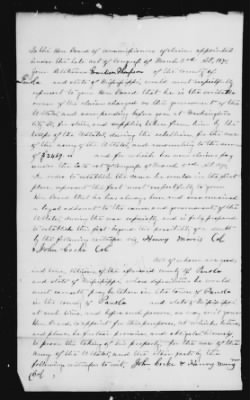 To the Hon Board of commissioners of claims appointed
under the late act of Congress of March 3rd 1871
Your Petitioner of the county of
and state of Mississippi, would most respectfully
represent to your Hon Board that he is the
owner of the claim charged on the government of the
U States, and now pending before you at Washington
City D.C. for and supplies taken from him by the
troops of the U States, during the rebellion for the use
of the army of the U States, and amounting to the sum
of $ and for which he now claims pay
under the late act of Congress of March
In order to establish the same he would in the first
place represent the fact most respectfully to your
Hon Board that he has always been, and now remained
a loyal adherent to the cause and government of the
U States, during the war especially, and is fully prepared
to establish this fact beyond the possibility of a doubt
by the following witnesses viz, Henry Morris Col
John Cocke Col
All of whom are good
and true, citizens of the aforesaid county of Panola
and state of Mississippi, whose depositions he would
most earnestly pray be taken in the town of Panola
in the county of Panola and state of Mississippi
at such time, and before such person, as may suit your
Hon Board, to appoint for this purpose, at which time
and place he further promises and obligates himself
to prove the taking of his property, for the use of the
Army of the U States, and the other facts by the
following witnesses to wit, John Cocke & Henry
Col